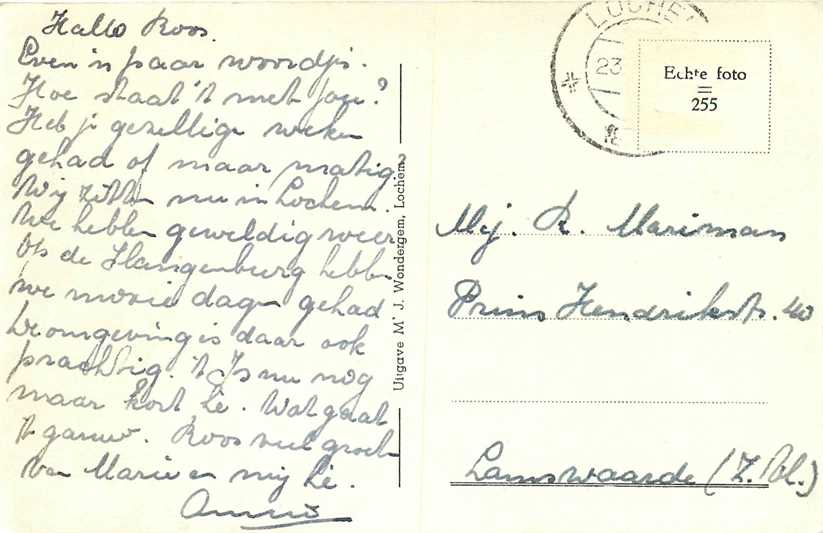 Hallo Roos.
Even 'n paar woordjs.
Hoe staat 't met jou?
Heb je gezellige weken
gehad of maar matig?
Wij zitten nu in Lochem.
We hebben geweldig weer
Op de Slangenburg hebben
we mooie dagen gehad
De omgeving is daar ook
prachtig. 't Is nu nog
maar kort, hè. Wat gaat
't gauw. Roos veel groeten
van Marie en mij hè.
Uitgave M. J. Wondergem, Lochem
LOCHEM
23
Echte foto
=
255
Mej. R. Mariman
Prins Hendrikstr. 40
Lamswaarde (Z. Vl.)